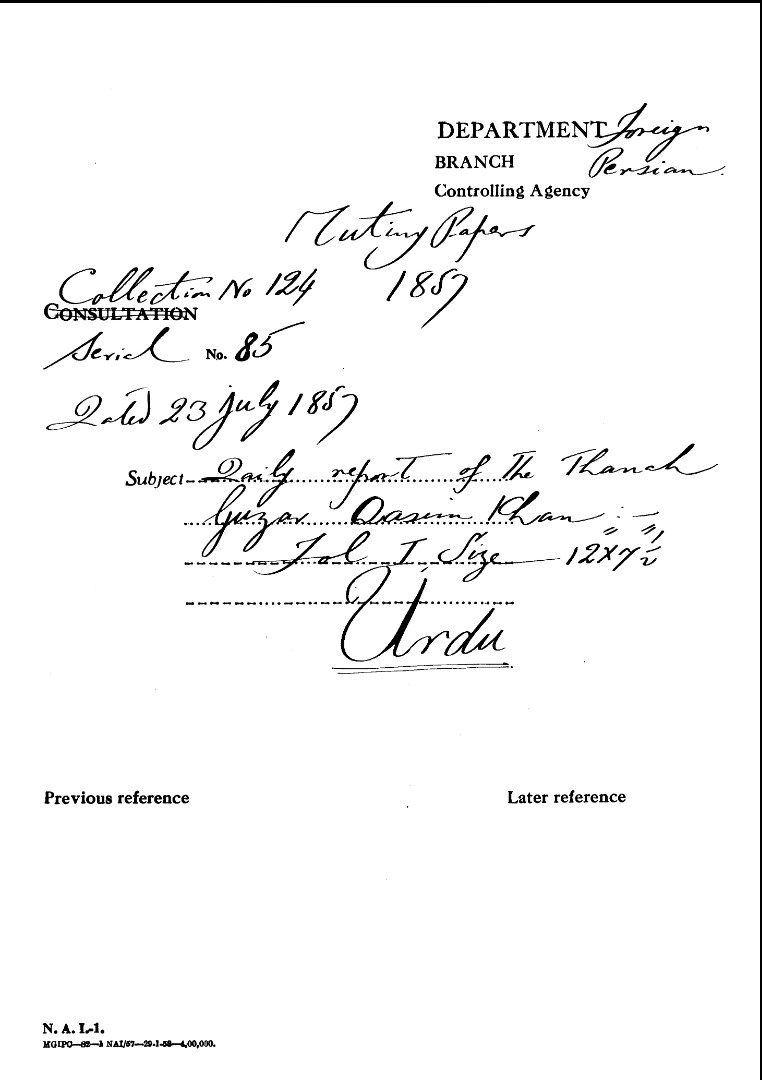 DEPARTMENT Foreign
BRANCH Persian
Controlling Agency
Mutiny Papers
Collection No 124 1857
CONSULTATION
Serial No. 85
Dated 23 July 1857
Subject Daily report of the Thanah
Guzar Qasim Khan
Fol I Size 12"x7½"
Urdu
Previous reference
Later reference
N. A. I.-1.
MGIPC—82—1 NAI/57—29-1-58—4,00,000.